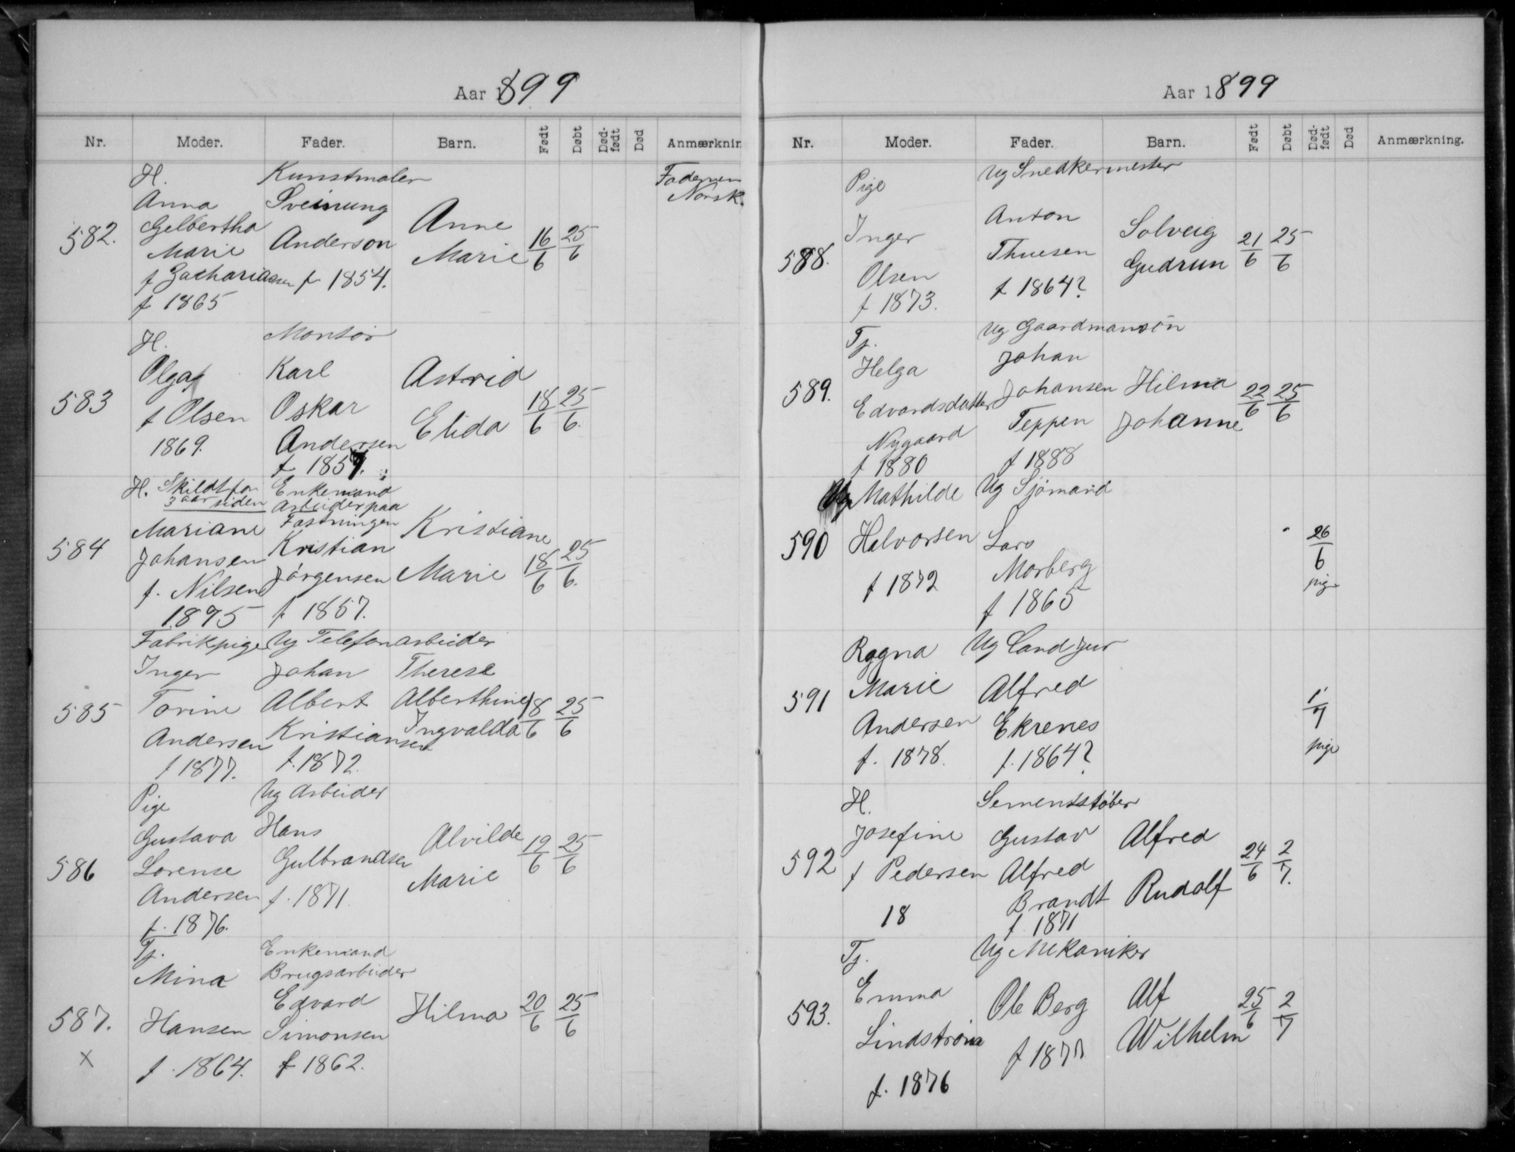 Aar 1899
Nr. Moder. Fader. Barn. Født Døbt Død-født Død Anmærknin
582. H. Kunstmaler Faderen
Anna Sveinung Norsk.
Gelbertha Anderson Anne 16/6 25/6
Marie Marie
f Zachariassen f. 1854.
f 1865
583 H. Montør
Olga Karl Astrid
f Olsen Oskar Elida 18/6 25/6.
1869. Andersen
f. 1857.
584 H. Skildt for Enkemand
3 aar siden Arbeider paa
Mariane Fæstningen Kristiane
Johansen Kristian
f. Nilsen Jørgensen Marie 18/6 25/6.
1875 f 1857.
585 Fabrikpige Ug Telefonarbeider
Inger Johan Therese
Torine Albert Alberthine 18/6 25/6
Andersen Kristiansen Ingvalda
f 1877. f. 1872.
586 Pige Ug Arbeider
Gustava Hans Alvilde 19/6 25/6
Lorense Gulbrandsen Marie
Andersen f. 1871.
f. 1876.
587. Tj. Enkemand
Mina Brugsarbeider
Hansen Edvard Hilma 20/6 25/6
Simonsen
X f. 1864. f 1862.
Aar 1899
Nr. Moder. Fader. Barn. Født Døbt Død-født Død Anmærkning.
588. Pige Ug Snedkermester
Inger Anton Solveig 21/6 25/6
Olsen Thuesen Gudrun
f 1873. f 1864?
589. Tj. Ug Gaardmansøn
Helga Johan
Edvardsdatter Johansen Hilma 22/6 25/6
Nygaard Teppen Johanne
f 1880 f 1888
590 Ug Mathilde Ug Sjømand
Halvorsen Lars 26/6
f 1872 Morberg pige
f 1865
591 Ragna Ug Cand jur
Marie Alfred 1/7
Andersen Ekrenes
f. 1878. f. 1864? pige
592 H. Sementstøber
Josefine Gustav Alfred 24/6 2/7.
f Pedersen Alfred
18 Brandt Rudolf
f. 1871
593. Tj. Ug Mekaniker
Emma Ole Berg Alf 25/6 2/7
Lindstrøm f 1877 Wilhelm
f. 1876